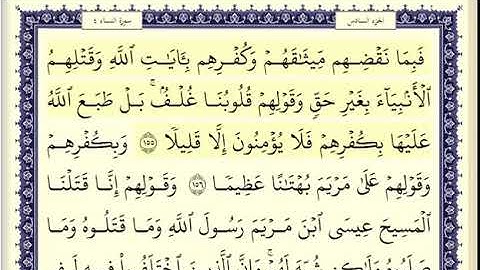 الجزء السادس
سورة النساء ٤
فَبِمَا نَقْضِهِم مِّيثَـٰقَهُمْ وَكُفْرِهِم بِـَٔايَـٰتِ ٱللَّهِ وَقَتْلِهِمُ
ٱلْأَنۢبِيَآءَ بِغَيْرِ حَقٍّ وَقَوْلِهِمْ قُلُوبُنَا غُلْفُۢ ۚ بَلْ طَبَعَ ٱللَّهُ
عَلَيْهَا بِكُفْرِهِمْ فَلَا يُؤْمِنُونَ إِلَّا قَلِيلًا ١٥٥ وَبِكُفْرِهِمْ
وَقَوْلِهِمْ عَلَىٰ مَرْيَمَ بُهْتَـٰنًا عَظِيمًا ١٥٦ وَقَوْلِهِمْ إِنَّا قَتَلْنَا
ٱلْمَسِيحَ عِيسَى ٱبْنَ مَرْيَمَ رَسُولَ ٱللَّهِ وَمَا قَتَلُوهُ وَمَا